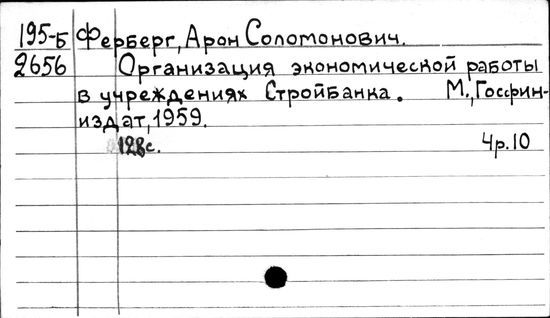 195-Б Ферберг, Арон Соломонович.
2656 Организация экономической работы
в учреждениях Стройбанка. М., Госфин-
издат, 1959.
128с. 4р.10